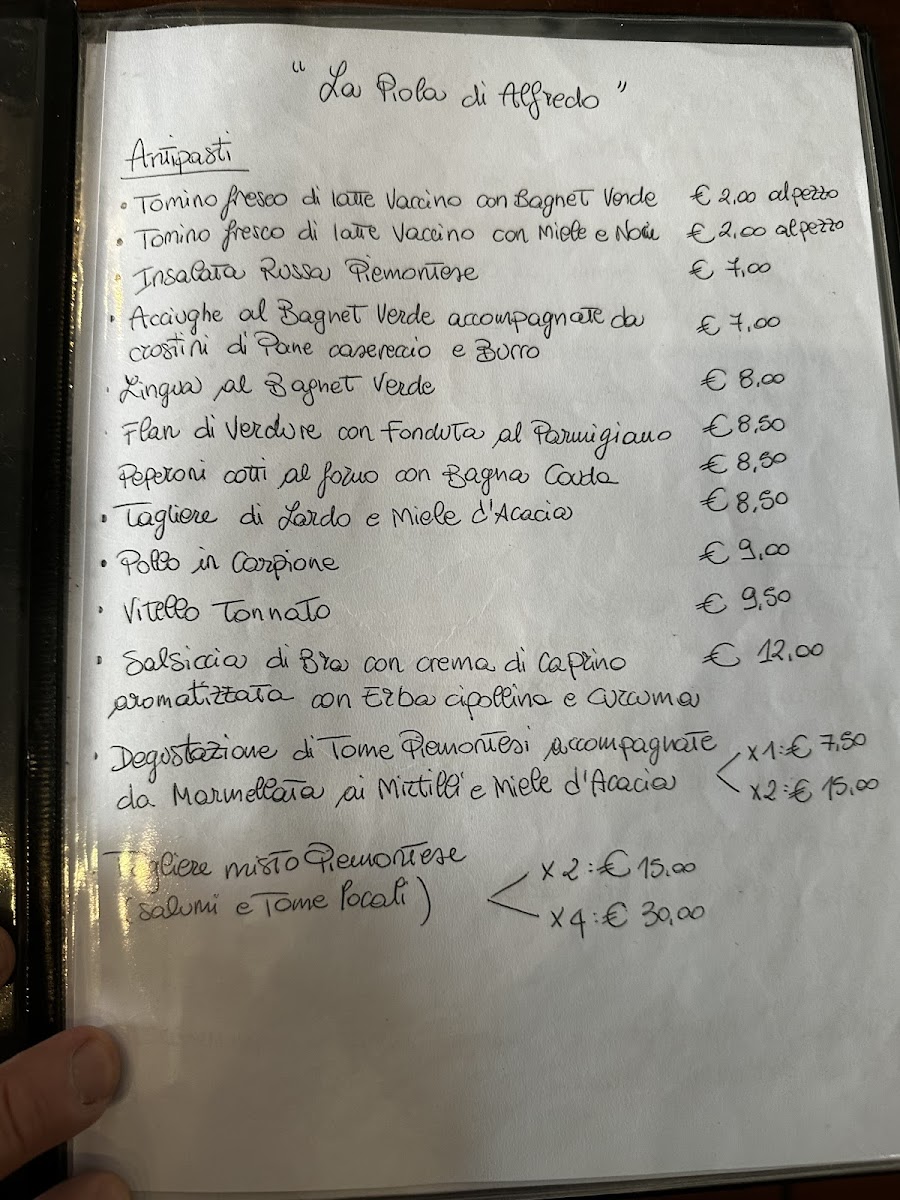 “ La Piola di Alfredo ”
Antipasti
• Tomino fresco di latte Vaccino con Bagnet Verde € 2,00 al pezzo
• Tomino fresco di latte Vaccino con Miele e Noci € 2,00 al pezzo
• Insalata Russa Piemontese € 7,00
• Acciughe al Bagnet Verde accompagnate da € 7,00
crostini di Pane casereccio e Burro
• Lingua al Bagnet Verde € 8,00
• Flan di Verdure con Fonduta al Parmigiano € 8,50
Peperoni cotti al forno con Bagna Cauda € 8,50
• Tagliere di Lardo e Miele d'Acacia € 8,50
• Pollo in Carpione € 9,00
• Vitello Tonnato € 9,50
• Salsiccia di Bra con crema di Caprino € 12,00
aromatizzata con Erba cipollina e Curcuma
• Degustazione di Tome Piemontesi accompagnate x1: € 7,50
da Marmellata ai Mirtilli e Miele d'Acacia x2: € 15,00
Tagliere misto Piemontese x2: € 15,00
(salumi e Tome locali) x4: € 30,00